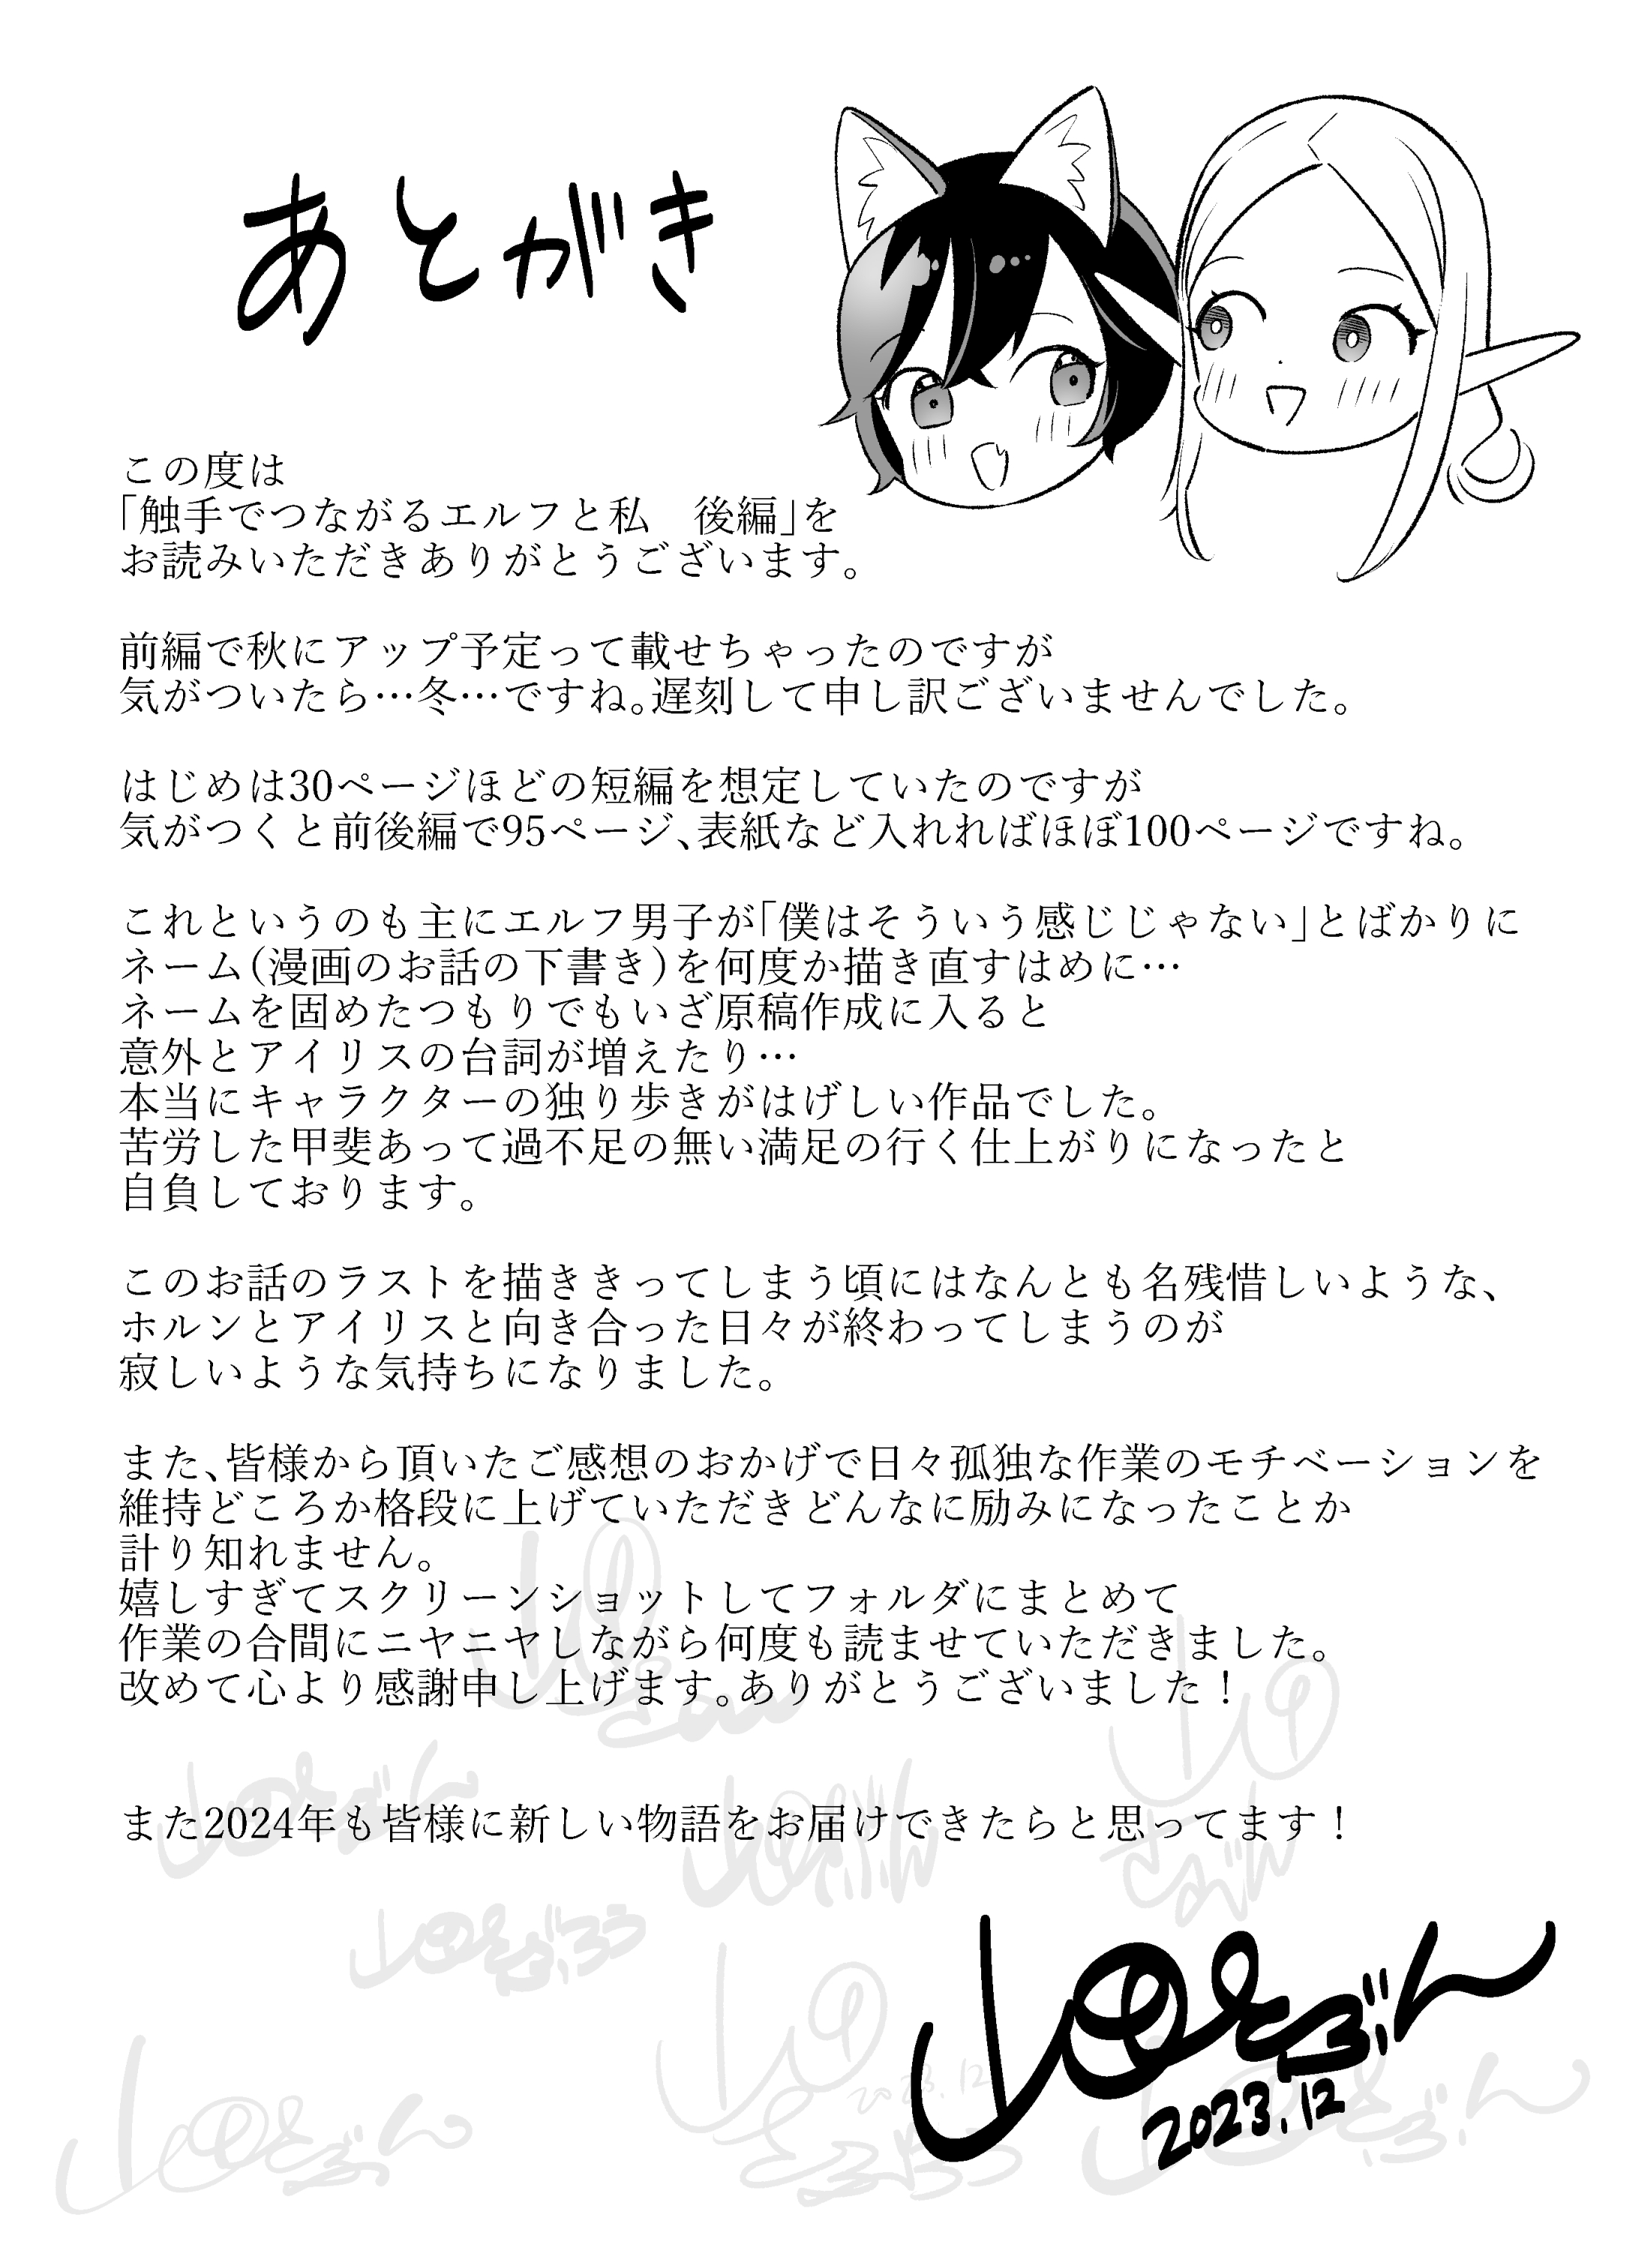 あとがき
この度は
「触手でつながるエルフと私　後編」を
お読みいただきありがとうございます。
前編で秋にアップ予定って載せちゃったのですが
気がついたら…冬…ですね。遅刻して申し訳ございませんでした。
はじめは30ページほどの短編を想定していたのですが
気がつくと前後編で95ページ、表紙など入れればほぼ100ページですね。
これというのも主にエルフ男子が「僕はそういう感じじゃない」とばかりに
ネーム(漫画のお話の下書き)を何度か描き直すはめに…
ネームを固めたつもりでもいざ原稿作成に入ると
意外とアイリスの台詞が増えたり…
本当にキャラクターの独り歩きがはげしい作品でした。
苦労した甲斐あって過不足の無い満足の行く仕上がりになったと
自負しております。
このお話のラストを描ききってしまう頃にはなんとも名残惜しいような、
ホルンとアイリスと向き合った日々が終わってしまうのが
寂しいような気持ちになりました。
また、皆様から頂いたご感想のおかげで日々孤独な作業のモチベーションを
維持どころか格段に上げていただきどんなに励みになったことか
計り知れません。
嬉しすぎてスクリーンショットしてフォルダにまとめて
作業の合間にニヤニヤしながら何度も読ませていただきました。
改めて心より感謝申し上げます。ありがとうございました！
また2024年も皆様に新しい物語をお届けできたらと思ってます！
2023.12
2023.12